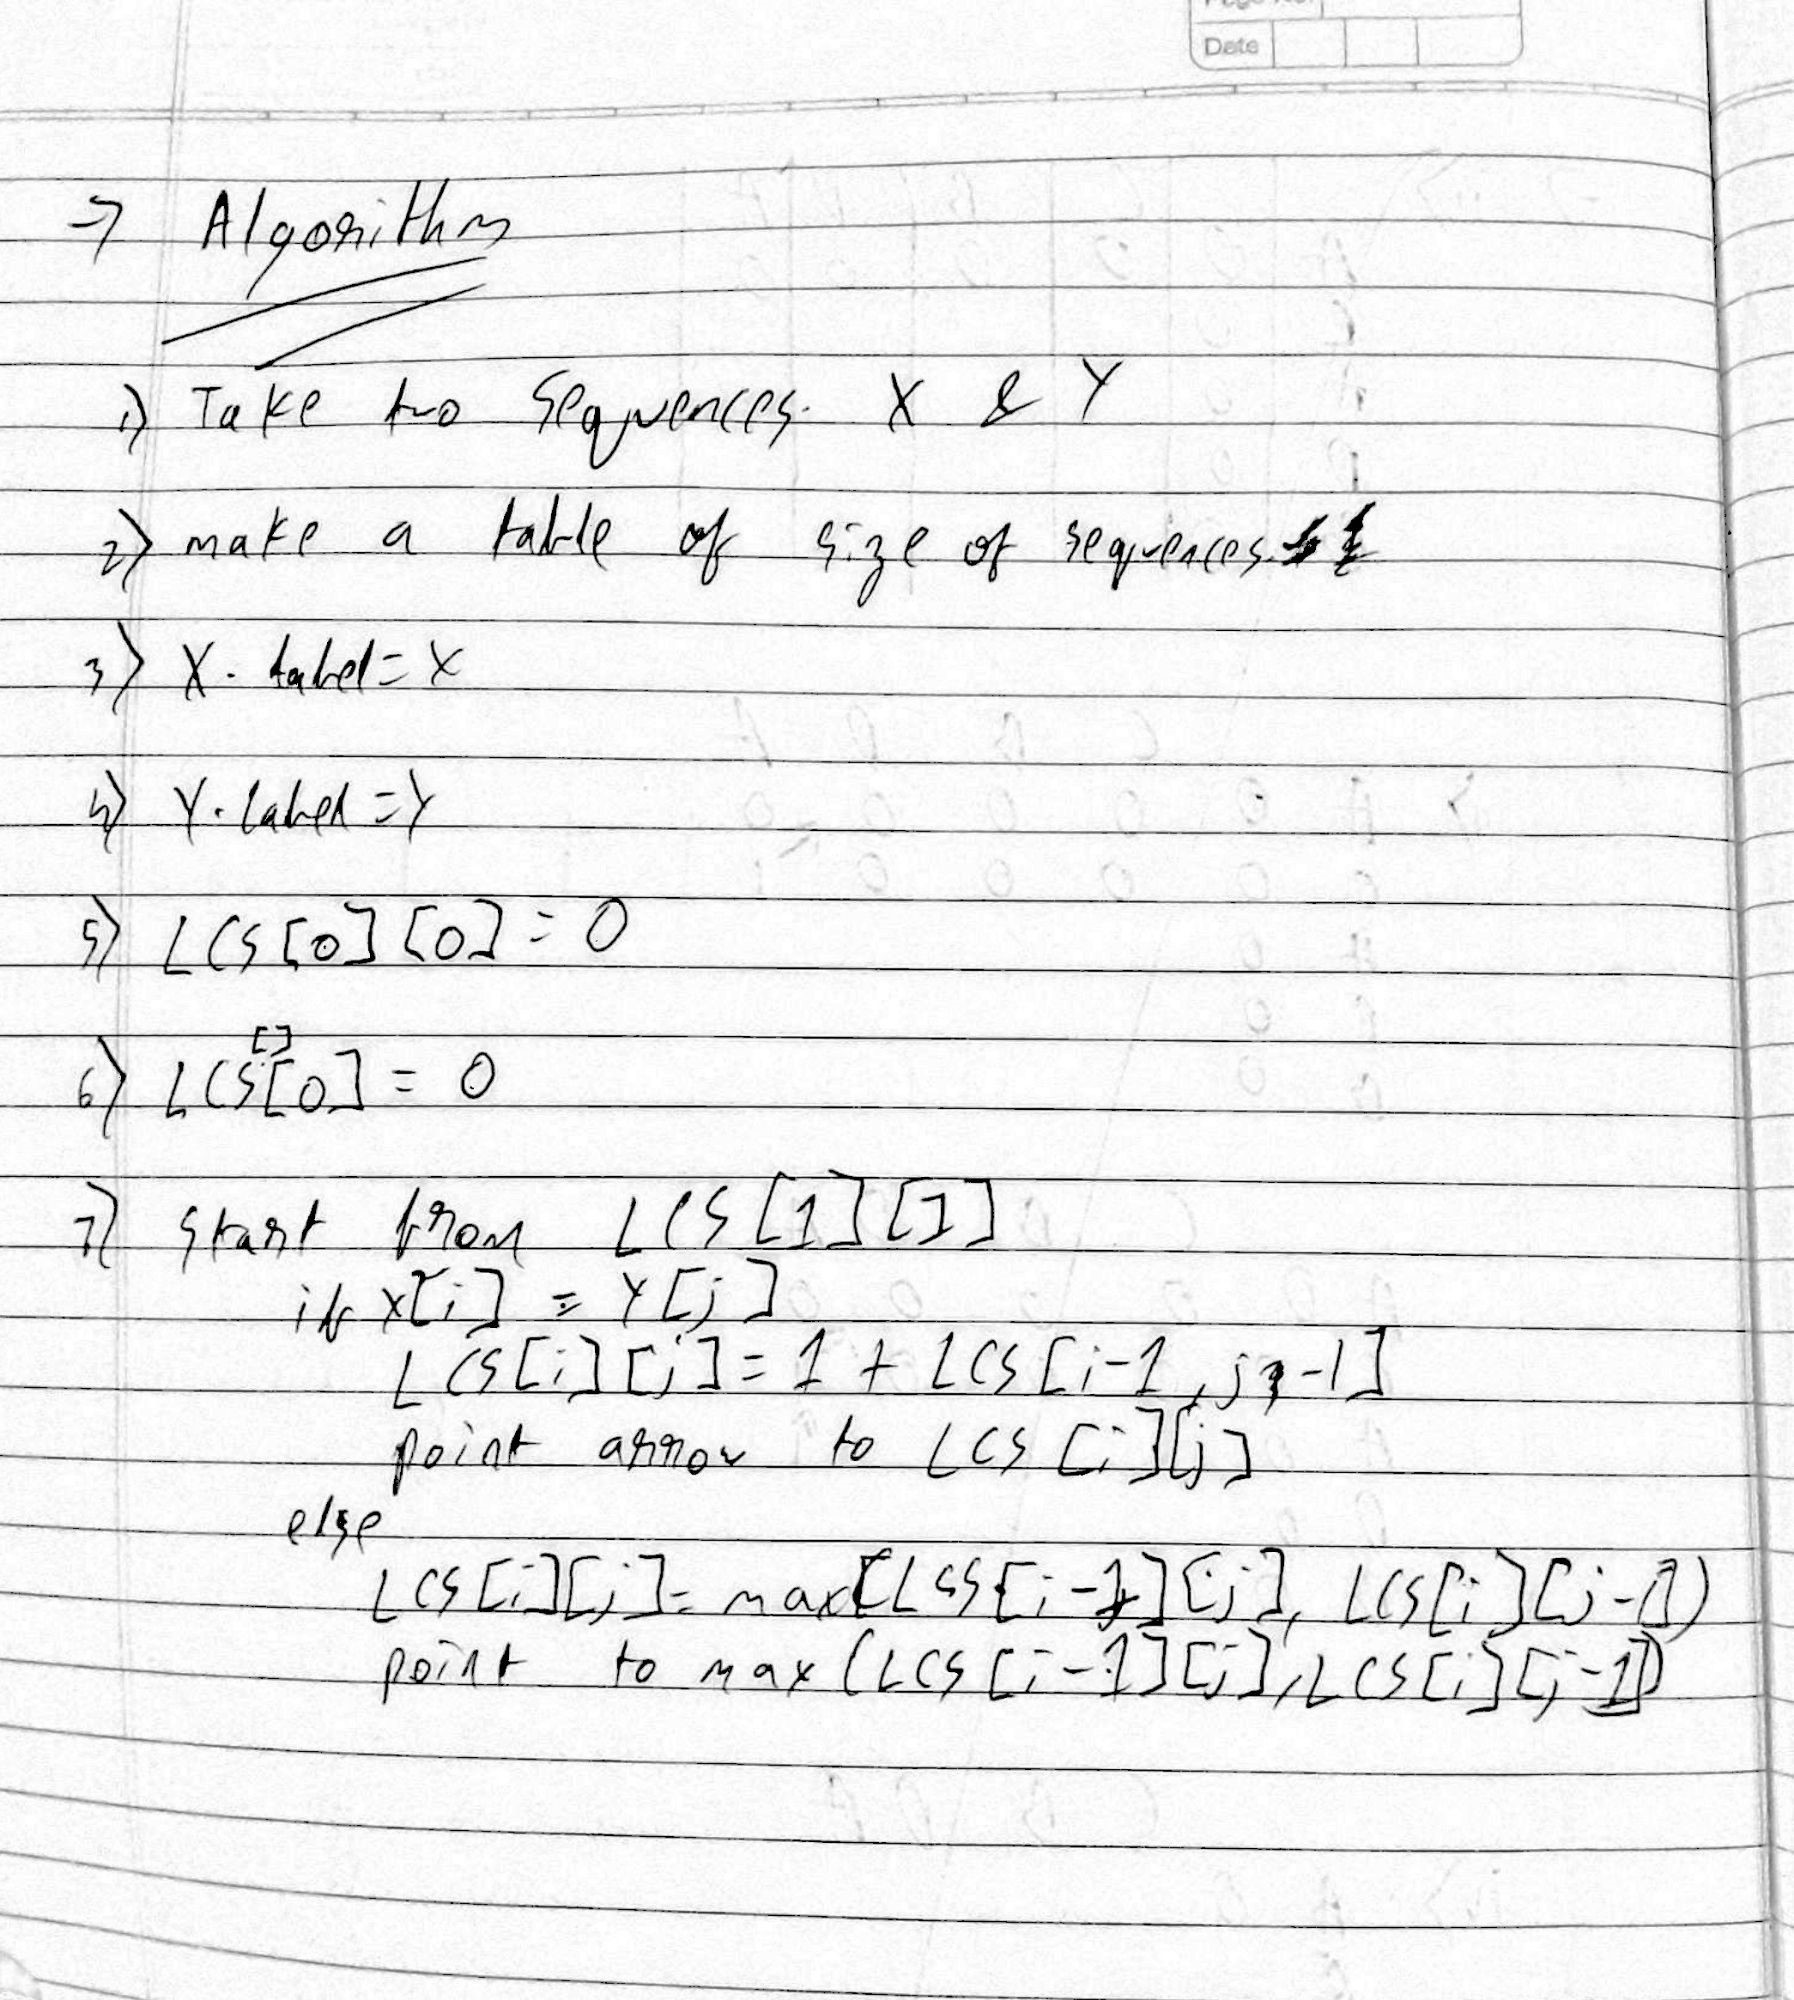 Page No.
Date
→ Algorithm
1) Take two sequences. X & Y
2) make a table of size of sequences.
3) X.label = X
4) Y.label = Y
5) LCS[0][0] = 0
[]
6) LCS[0] = 0
7) start from LCS[1][1]
if X[i] = Y[j]
LCS[i][j] = 1 + LCS[i-1, j-1]
point arrow to LCS[i][j]
else
LCS[i][j] = max(LSS[i-1][j], LCS[i][j-1])
point to max(LCS[i-1][j], LCS[i][j-1])